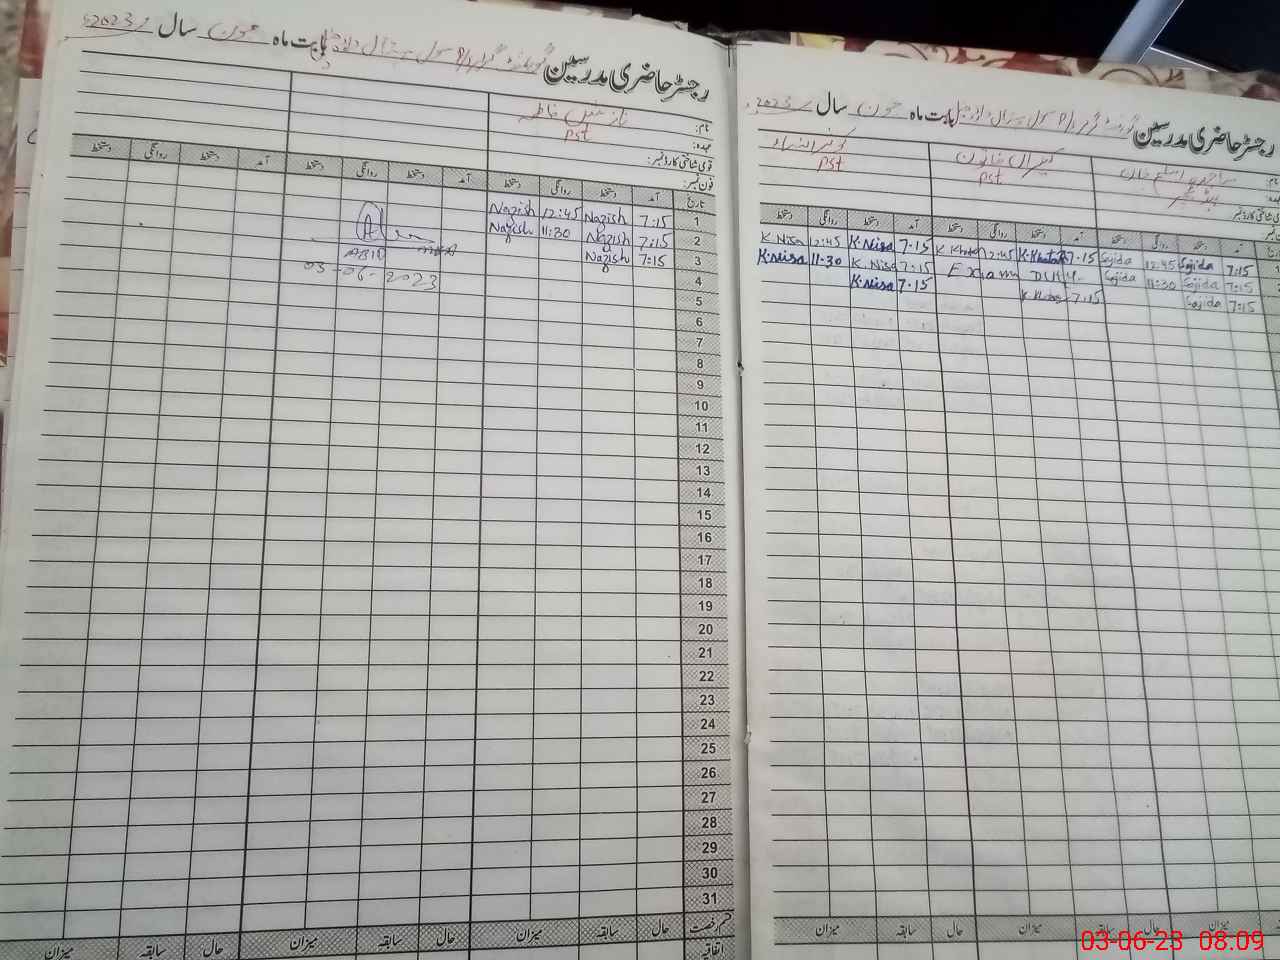 رجسٹر حاضری مدرسین بابت ماہ جون سال 2023ء
نام: نازش فاطمہ
عہدہ: PST
قومی شناختی کارڈ نمبر:
فون نمبر:
تاریخ آمد دستخط روانگی دستخط آمد دستخط روانگی دستخط آمد دستخط روانگی دستخط
1 7:15 Nazish 12:45 Nazish
2 7:15 Nazish 11:30 Nazish
3 7:15 Nazish
ABID
03-06-2023
4
5
6
7
8
9
10
11
12
13
14
15
16
17
18
19
20
21
22
23
24
25
26
27
28
29
30
31
قسم رخصت حال سابقہ میزان حال سابقہ میزان حال سابقہ میزان
اتفاقیہ
رجسٹر حاضری مدرسین بابت ماہ جون سال 2023ء
PST PST
آمد دستخط روانگی دستخط آمد دستخط روانگی دستخط آمد دستخط روانگی دستخط
7:15 Sajida 12:45 Sajida 7.15 K.Khatoon 12:45 K Khatoon 7.15 K.Nisa 12:45 K.Nisa
7:15 Sajida 11:30 Sajida Exam Duty 7:15 K.Nisa 11-30 K.Nisa
7:15 Sajida 7.15 7.15 K.Nisa
میزان سابقہ حال میزان سابقہ حال میزان
03-06-23 08.09